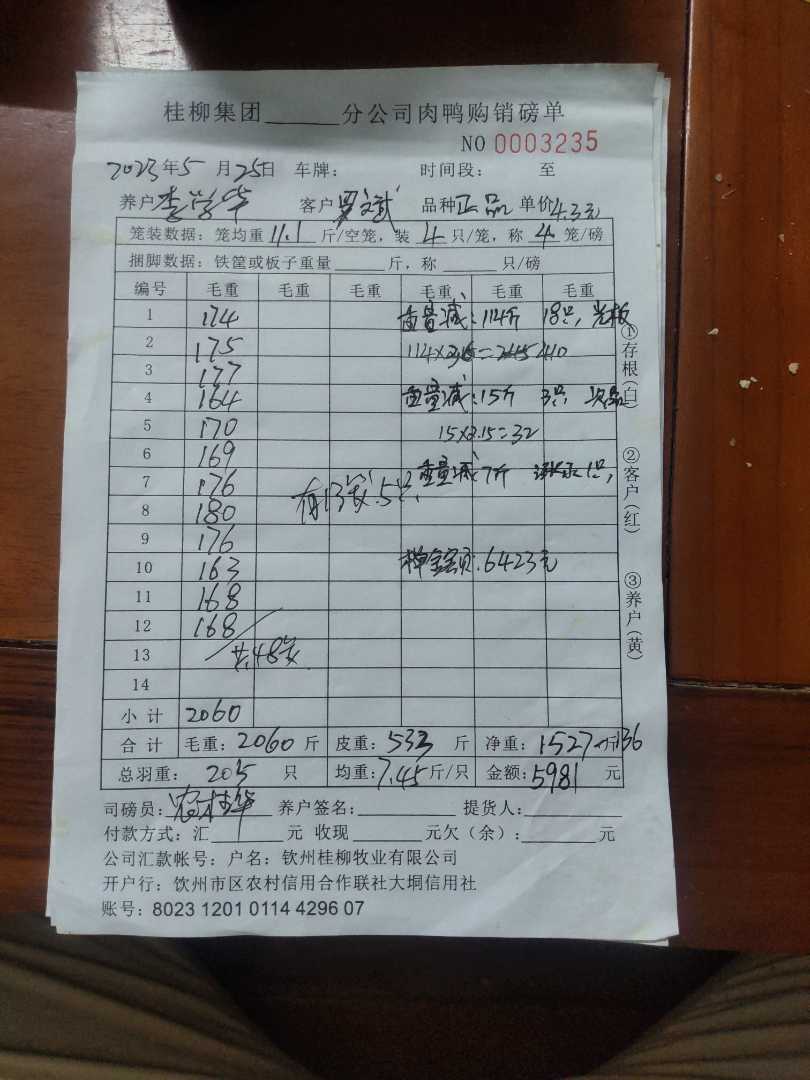 桂柳集团______分公司肉鸭购销磅单
NO 0003235
2023年5月25日 车牌: 时间段: 至
养户 李学华 客户 罗文武 品种 正品 单价 4.3元
笼装数据: 笼均重 11.1 斤/空笼, 装 4 只/笼, 称 4 笼/磅
捆脚数据: 铁筐或板子重量______斤, 称______只/磅
编号 毛重 毛重 毛重 毛重 毛重 毛重
1 174 重量减:114斤 18只,光板
2 175 114×2.15=245 240
3 177
4 164 重量减:15斤 3只 次品
5 170 15×2.15=32
6 169
7 176 重量减:7斤 1只,
8 180 有13笼.5只,
9 176
10 163 单金额:6423元
11 168
12 168
13 共48笼
14
小计 2060
合计 毛重: 2060 斤 皮重: 533 斤 净重: 1527斤 136
总羽重: 205 只 均重: 7.45 斤/只 金额: 5981 元
①存根(白)
②客户(红)
③养户(黄)
司磅员: 养户签名: 提货人:
付款方式: 汇______元 收现______元欠(余):______元
公司汇款帐号: 户名: 钦州桂柳牧业有限公司
开户行: 钦州市区农村信用合作联社大垌信用社
账号: 8023 1201 0114 4296 07